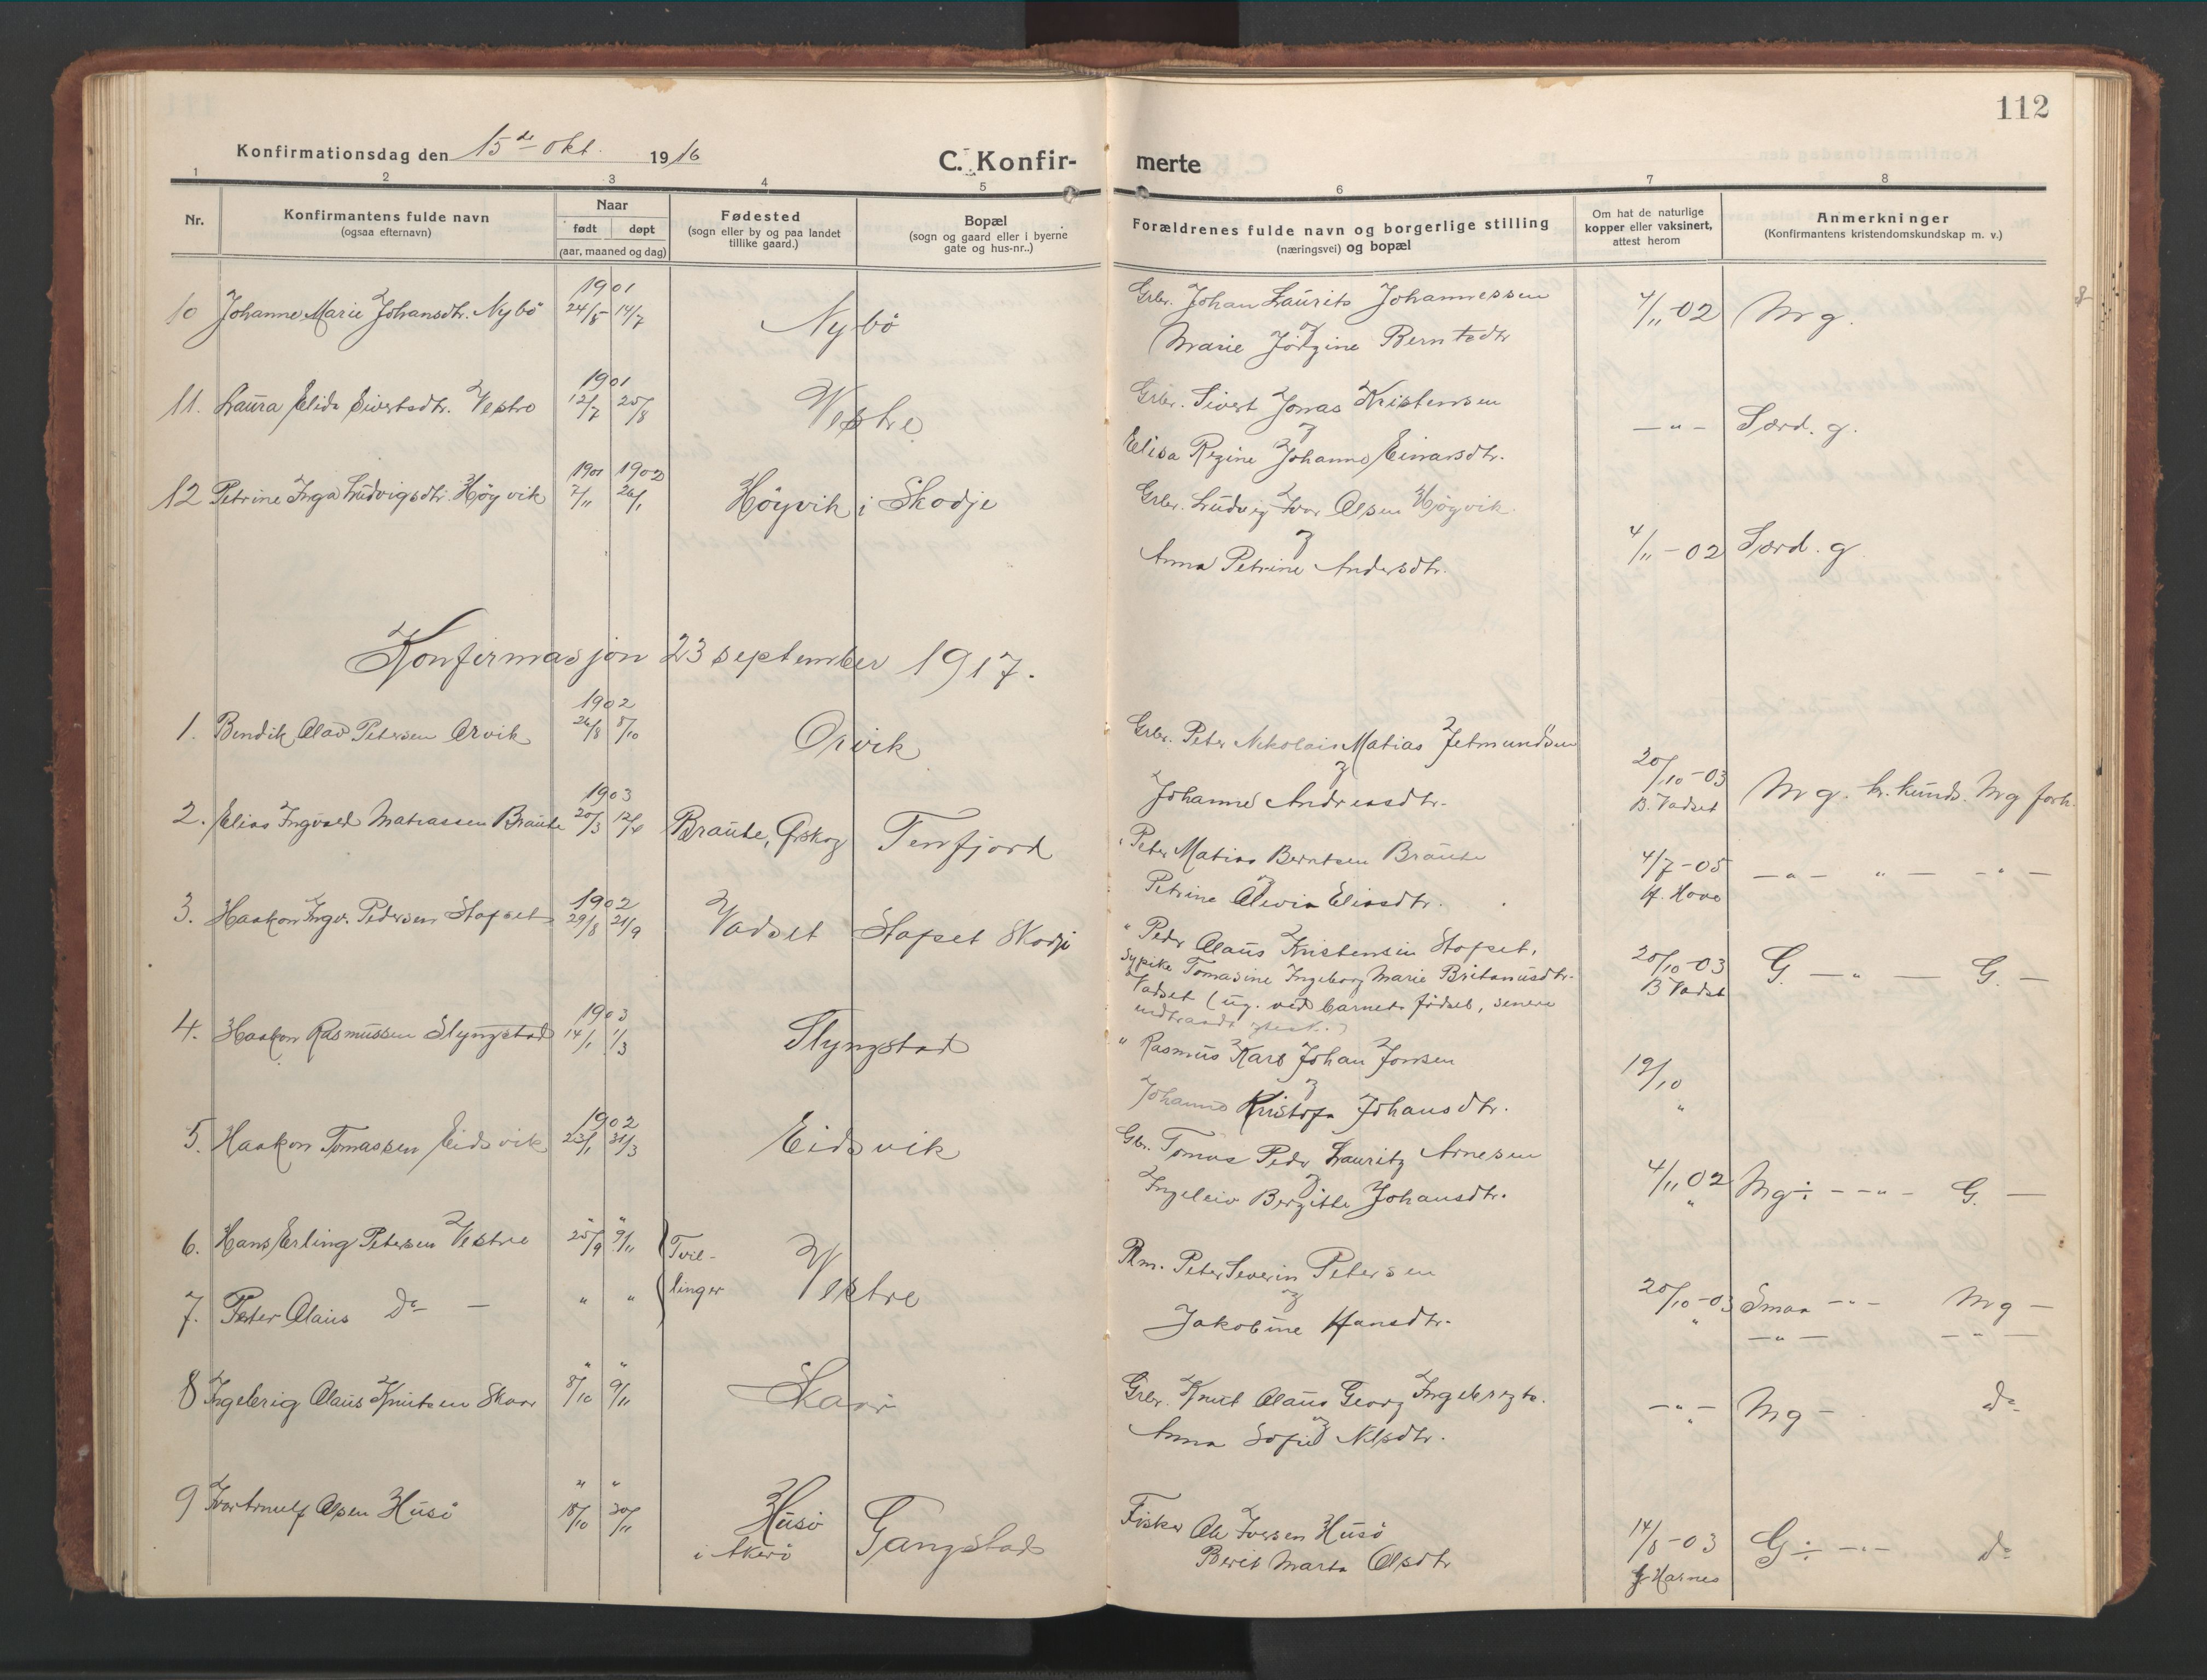 112
Konfirmationsdag den 15de okt. 1916
C. Konfir-
merte
1 2 3 4 5 6 7 8
Nr.
Konfirmantens fulde navn
(ogsaa efternavn)
Naar
født døpt
(aar, maaned og dag)
Fødested
(sogn eller by og paa landet
tillike gaard.)
Bopæl
(sogn og gaard eller i byerne
gate og hus-nr..)
Forældrenes fulde navn og borgerlige stilling
(næringsvei) og bopæl
Om hat de naturlige
kopper eller vaksinert,
attest herom
Anmerkninger
(Konfirmantens kristendomskundskap m. v.)
1901
10 Johanne Marie Johansdtr. Nybö 24/5 14/7 Nybö
Grbr. Johan Laurits Johannessen
Marie Jörgine Berntsdtr
4/11-02 Mg.
1901
11. Laura Elida Sivertsdtr. Vestre 12/7 25/8 Vestre
Grbr. Sivert Jonas Kristensen
Elisa Regine Johanne Einarsdtr.
—"— Særd. g.
1901 1902
12 Petrine Inga Ludvigsdtr. Høgvik 7/11 26/1 Höyvik i Skodje
Grbr. Ludvig Ivar Olsen Høgvik
Anna Petrine Andersdtr.
4/11-02 Særd. g
Konfirmasjon 23 september 1917.
1902
1. Bendik Olav Petersen Orvik 26/8 5/10 Orvik
Grbr. Peter Nikolais Matias Jetmundsen
Johanne Andreasdtr.
20/10-03
B. Vadset
Mg. kr. kunds. Mg forh.
1903
2. Elias Ingvald Matiassen Braute 20/3 12/4 Braute, Ørskog Tenfjord
" Peter Matias Berntsen Braute
Petrine Olevia Eliasdtr.
4/7-05
H. Hove
—"— " — —"—
1902
3. Haakon Ingv. Pedersen Stafset 29/8 21/9 Vadset Stafset Skodje
" Peder Olaus Kristensen Stafset,
Sypike Tomasine Ingeborg Marie Britanusdtr.
Vadset (ug. ved barnets fødsel, senere
20/10-03
B Vadset
G. —"— G. —
1903
4. Haakon Rasmussen Slyngstad 14/1 1/3 Slyngstad
" Rasmus Karl Johan Jonsen
Johanne Kristofa Johansdtr.
19/10
"
1902
5. Haakon Tomassen Eidsvik 23/1 31/3 Eidsvik
Gbr. Tomas Peder Lauritz Arnesen
Ingeleiv Bergitte Johansdtr.
4/11 02
"
Mg÷ —"— G. —
" "
6. Hans Erling Petersen Vestre 25/9 9/11 Tvil-
linger Vestre
7. Peter Olaus Do — " "
Rm. Peter Severin Petersen
Jakobine Hansdtr.
20/10-03
"
Smaa —"— Mg —
—"— —"—
" "
8 Ingebrig Olaus Knutsen Skaar 8/10 9/11 Skaar
Grbr. Knut Olaus Georg Ingebrigts.
Anna Sofie Nilsdtr.
—"—
"
Mg — do
" "
9 Ivar Arnulf Olsen Husö 18/10 30/11 Husö
i Akerö Gangstad
Fisker Ole Iversen Husö
Berit Marta Olsdtr
14/8-03
J. Harnes
G÷ —"— do